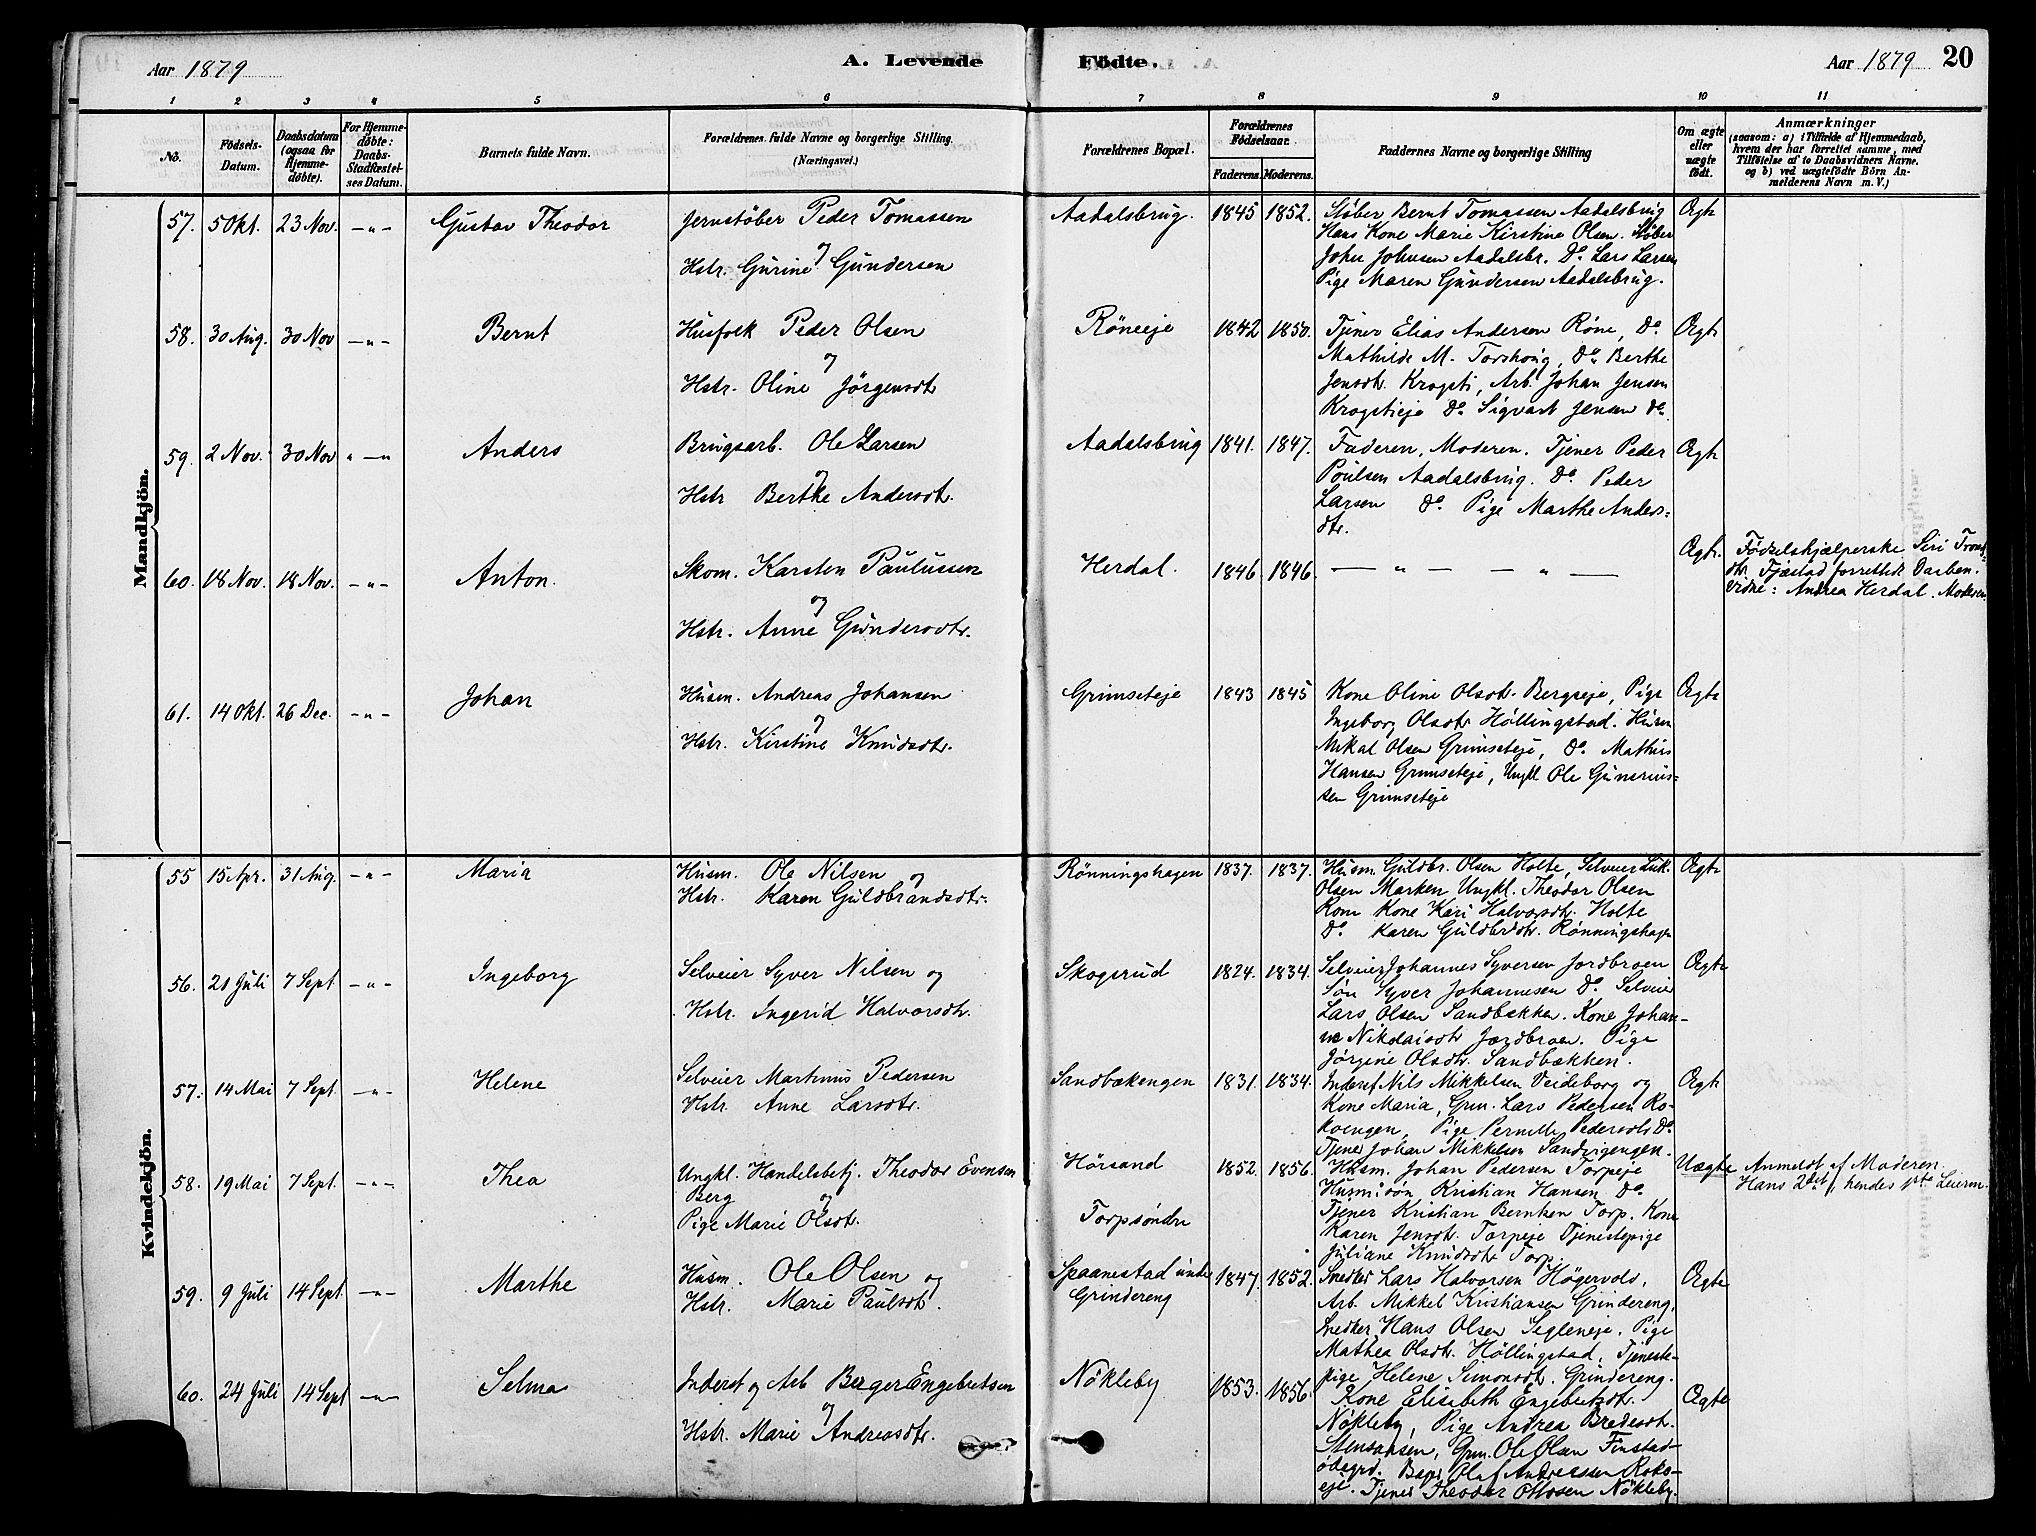 Aar 1879
A. Levende
Fødte.
Aar 1879
20
1 2 3 4 5 6 7 8 9 10 11
No.
Fødsels-Datum.
Daabsdatum (ogsaa for Hjemmedøbte).
For Hjemmedøbte: Daabs-Stadfæstelses Datum.
Barnets fulde Navn.
Forældrenes fulde Navne og borgerlige Stilling.
(Næringsvei.)
Forældrenes Bopæl.
Forældrenes Fødselsaar.
Faderens. Moderens.
Faddernes Navne og borgerlige Stilling
Om ægte eller uægte født.
Anmærkninger
(saasom: a) i Tilfælde af Hjemmedaab,
hvem der har forrettet samme, med
Tilføielse af to Daabsvidners Navne.
og b) ved uægtefødte Børn An-
melderens Navn m. V.)
Mandkjön.
57. 5 Okt. 23 Nov. —„— Gustav Theodor Jernstöber Peder Tomassen
og
Hstr. Gurine Gundersen
Aadalsbrug. 1845 1852. Støber Bernt Tomassen Aadalsbrug
Hans Kone Marie Kirstine Olsen. Støber
Johu Johnsen Aadalsbr. Do Lars Larsen
Pige Maren Gundersen Aadalsbrug.
Ægte
58. 30 Aug. 30 Nov —„— Bernt Husfolk Peder Olsen
og
Hstr. Oline Jörgensdt
Röneeje 1842 1850. Tjener Elias Andersen Röne, Do
Mathilde M. Torshoug, Do Berthe
Jensdt. Krogsti, Arb. Johan Jensen
Krogstieje Do Sigvart Jensen Do
Ægte
59. 2 Nov. 30 Nov „—„ Anders Brugsarb. Ole Larsen
og
Hstr Berthe Andersdt.
Aadalsbrug 1841. 1847. Faderen, Moderen. Tjener Peder
Poulsen Aadalsbrug. Do Peder
Larsen Do Pige Marthe Anders-
dtr.
Ægte
60. 18 Nov. 18 Nov. —„— Anton. Skom. Karsten Paulussen
og
Hstr. Anne Gundersdtr.
Herdal. 1846 1846. — „ — — „ —
Ægte. Fødselshjælperske Siri Trons-
dtr. Fjæstad forrettede Daaben.
Vidne: Andrea Herdal. Moderen
61. 14 Okt. 26 Dec. —„— Johan Husm. Andreas Johansen
og
Hstr. Kirstine Knudsdtr.
Grimseteje 1843 1845 Kone Oline Olsdt. Bergseje, Pige
Ingeborg Olsdtr Höllingstad. Husm
Mikal Olsen Grimseteje, Do. Mathias
Hansen Grimseteje, Ungkl Ole Gunerius-
sen Grimseteje
Ægte
Kvindekjön.
55 15 Apr. 31 Aug. —„— Maria Husm. Ole Nilsen og
Hstr. Karen Guldbrandsdtr.
Rönningshagen 1837. 1837. Husm Guldbr. Olsen Holte, Selveier Luk.
Olsen Marken Ungkl. Theodor Olsen
Kone Kari Halvorsdtr. Holte
Do Karen Guldbrdtr. Rönningshagen
Ægte
56. 21 Juli 7 Sept —„— Ingeborg Selveier Syver Nilsen og
Hstr. Ingerid Halvorsdtr.
Skogsrud 1824. 1834. Selveier Johannes Syversen Jordbroen
Sön Syver Johannesen Do Selveier
Lars Olsen Sandbækken. Kone Johan-
ne Nikolaisdt Jordbroen. Pige
Jörgine Olsdtr. Sandbækken.
Ægte
57. 14 Mai 7 Sept. —„— Helene Selveier Martinus Pedersen
Hstr. Anne Larsdtr.
Sandbækengen 1831. 1834. Inderst Nils Mikkelsen Veideborg og
Kone Maria, Grm. Lars Pedersen Ro-
koengen, Pige Pernille Pedersdt Do
Tjener Johan Mikkelsen
Ægte
58. 19 Mai 7 Sept. —„— Thea Ungkl. Handelsbetj. Theodor Evensen
Berg og
Pige Marie Olsdtr.
Hörsand
Torpsöndre
1852. 1856. Husm. Johan Pedersen Torpeje
Husmsön Kristian Hansen Do
Tjener Kristian Berntsen Torp. Kone
Karen Jensdt. Torpeje Tjenestepige
Juliane Knudsdtr Torp.
Uægte Anmeldt af Moderen.
Hans 2det, hendes 1ste Leierm.
59. 9 Juli 14 Sept. —„— Marthe Husm. Ole Olsen og
Hstr. Marie Paulsdt.
Spaanestad under
Grindereng
1847. 1852. Snedker Lars Halvorsen Högervold,
Arb. Mikkel Kristiansen Grindereng,
Snedker Hans Olsen Segleneje. Pige
Mathea Olsdtr. Höllingstad, Tjeneste-
pige Helene Simonsdt. Grindereng.
Ægte
60. 24 Juli 14 Sept —„— Selma Inderst og Arb Berger Engebretsen
og
Hstr. Marie Andreasdtr.
Nökleby 1853. 1856. Kone Elisabeth Engebretsdt.
Nökleby, Pige Andrea Bredesdt.
Grm. Ole Olsen Finstad-
ödegrd. Olaf Andreassen Roko-
eje. Tjener Theodor Ottosen Nökleby.
Ægte